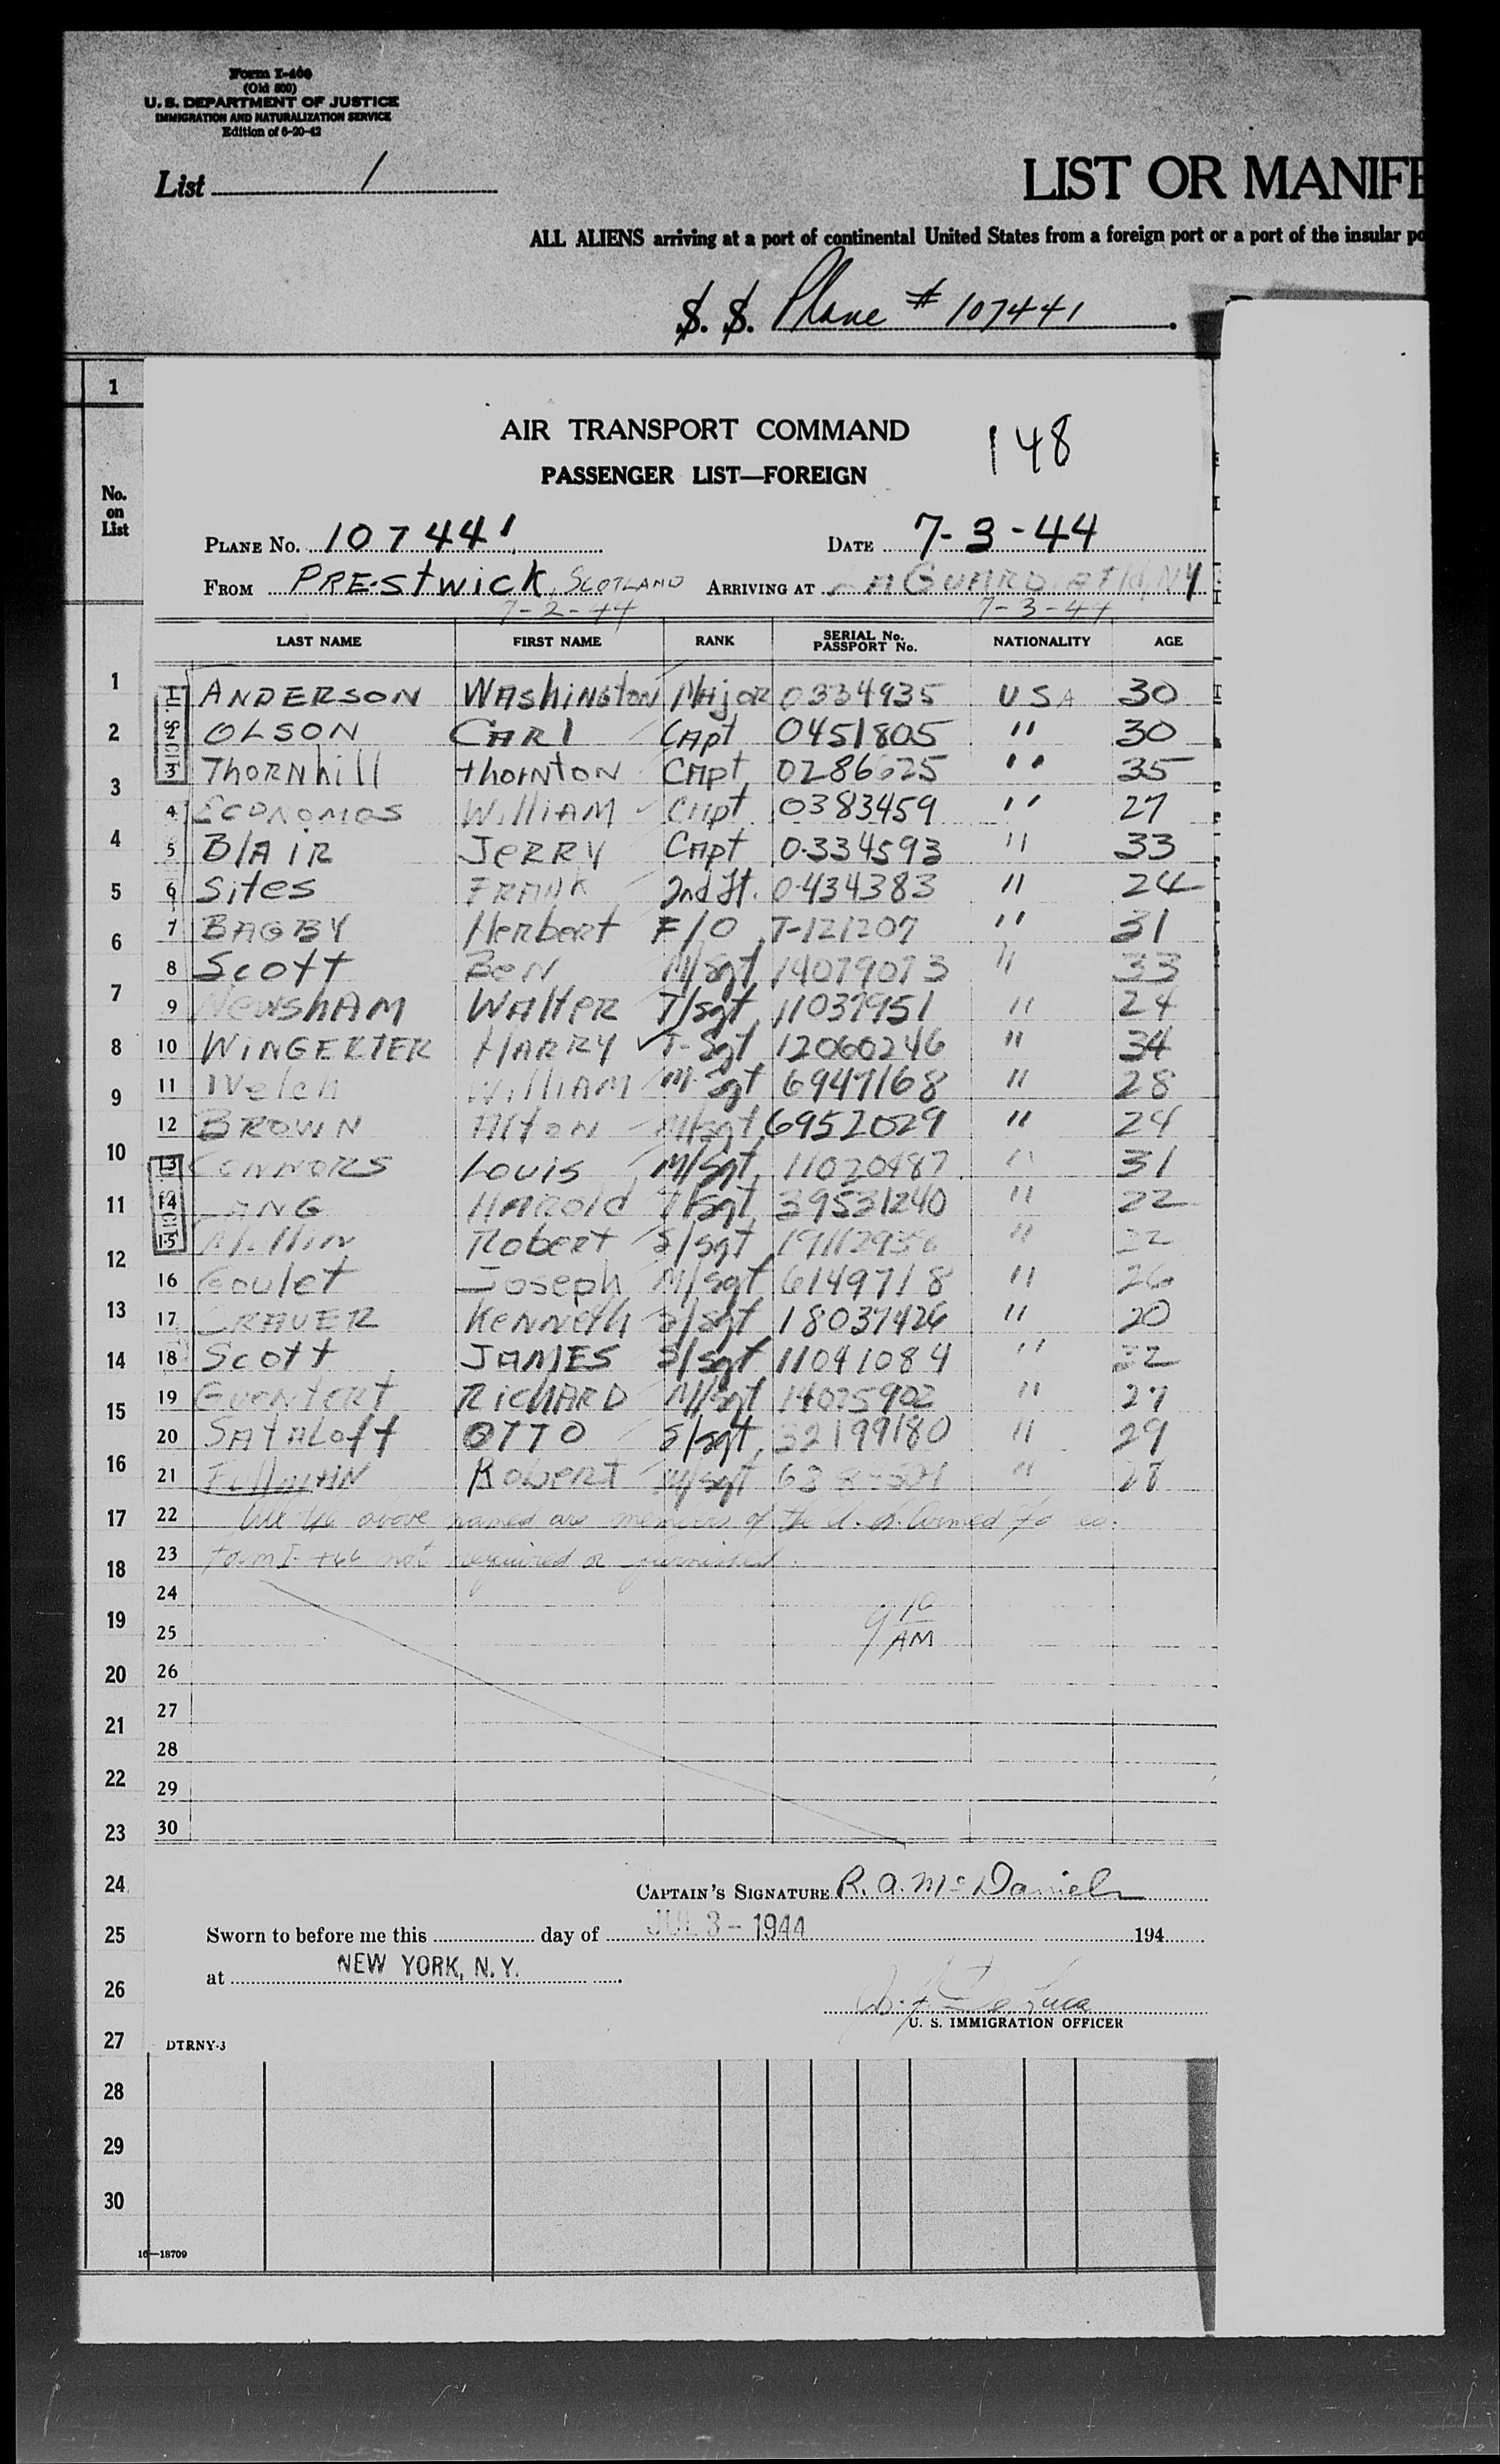 Form I-466
(Old 500)
U. S. DEPARTMENT OF JUSTICE
IMMIGRATION AND NATURALIZATION SERVICE
Edition of 6-20-42
List 1
LIST OR MANIFE
ALL ALIENS arriving at a port of continental United States from a foreign port or a port of the insular po
S. S. Plane # 107441
1
No. on List
AIR TRANSPORT COMMAND
148
PASSENGER LIST—FOREIGN
PLANE No. 107441 DATE 7-3-44
FROM PREStwick, SCOTLAND ARRIVING AT LAGUARDIA NY
7-2-44 7-3-44
LAST NAME FIRST NAME RANK SERIAL No. PASSPORT No. NATIONALITY AGE
1 ANDERSON WAshiNGtoN MAjoR 0334935 USA 30
2 OLSON CARl CApt 0451805 " 30
3 ThoRNhill thorNtoN CApt 0286625 " 35
4 ECONOMOS WilliAM CApt 0383459 " 27
5 BlAiR JERRY CApt 0-334593 " 33
6 Sites FRANK 2nd Lt. 0-434383 " 24
7 BAGBY Herbert F/O T-121207 " 31
8 Scott BEN M/Sgt 14079073 " 33
9 NewshAM WAlter T/sgt 11037951 " 24
10 WiNGERTER HARRY T-Sgt 12060246 " 34
11 Welch WilliAM M-Sgt 6947168 " 28
12 BROWN AltoN M/sgt 6952029 " 24
13 CONNORS Louis M/Sgt 11020487 " 31
14 LANG HARold T/Sgt 39531240 " 22
15 Robert S/sgt " 22
16 Goulet Joseph M/sgt 6149718 " 26
17 CRAVER KENNeth S/Sgt 18037426 " 20
18 Scott JAMES S/sgt 11041084 " 22
19 GUENTERT RiCHARD M/sgt 14075902 " 27
20 SAtALoff OTTO S/sgt 32199180 " 29
21 FullMAN RobeRt M/sgt " 28
22 All the above named are members of the U. S. Armed Forces.
23 Form I-466 not required or furnished.
24
9 10 AM
25
26
27
28
29
30
CAPTAIN'S SIGNATURE R. A. McDaniel
Sworn to before me this day of JUL 3 - 1944 194
at NEW YORK, N. Y.
De Luca
U. S. IMMIGRATION OFFICER
DTRNY-3
1
2
3
4
5
6
7
8
9
10
11
12
13
14
15
16
17
18
19
20
21
22
23
24
25
26
27
28
29
30
16—18709